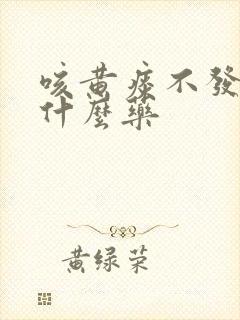 咳黄痰不發
什麼藥
黄绿荣